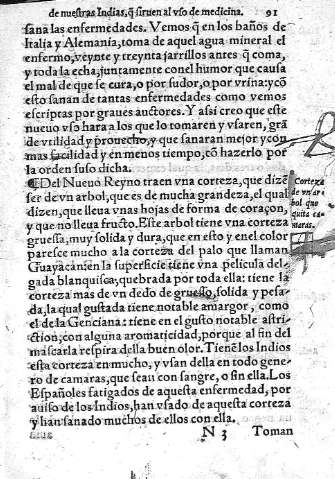 de nuestras Indias, q̃ siruen al vso de medicina. 91
sana las enfermedades. Vemos q̃ en los baños de
Italia y Alemania, toma de aquel agua mineral el
enfermo, veynte y treynta jarrillos antes q̃ coma,
y toda la echa, juntamente con el humor que causa
el mal de que se cura, o por sudor, o por vrina: y cõ
esto sanan de tantas enfermedades como vemos
escriptas por graues auctores. Y assi creo que este
nueuo vso hara a los que lo tomaren y vsaren, grã
de vtilidad y prouecho, y que sanaran mejor y con
mas facilidad y en menos tiempo, cõ hazerlo por
la orden suso dicha.
¶Del Nueuo Reyno traen vna corteza, que dizẽ
ser de vn arbol, que es de mucha grandeza, el qual
dizen, que lleua vnas hojas de forma de coraçon,
y que no lleua fructo. Este arbol tiene vna corteza
gruessa, muy solida y dura, que en esto y en el color
paresce mucho a la corteza del palo que llaman
Guayacan: en la superficie tiene vna pelicula del-
gada blanquisca, quebrada por toda ella: tiene la
corteza mas de vn dedo de gruesso, solida y pesa-
da, la qual gustada tiene notable amargor, como
el de la Genciana: tiene en el gusto notable astri-
ction, con alguna aromaticidad, porque al fin del
mascarla respira della buen olor. Tienẽ los Indios
esta corteza en mucho, y vsan della en todo gene-
ro de camaras, que sean con sangre, o sin ella. Los
Españoles fatigados de aquesta enfermedad, por
auiso de los Indios, han vsado de aquesta corteza
y han sanado muchos de ellos con ella.
N 3 Toman
Corteza
de vn ar
bol que
quita ca
maras.